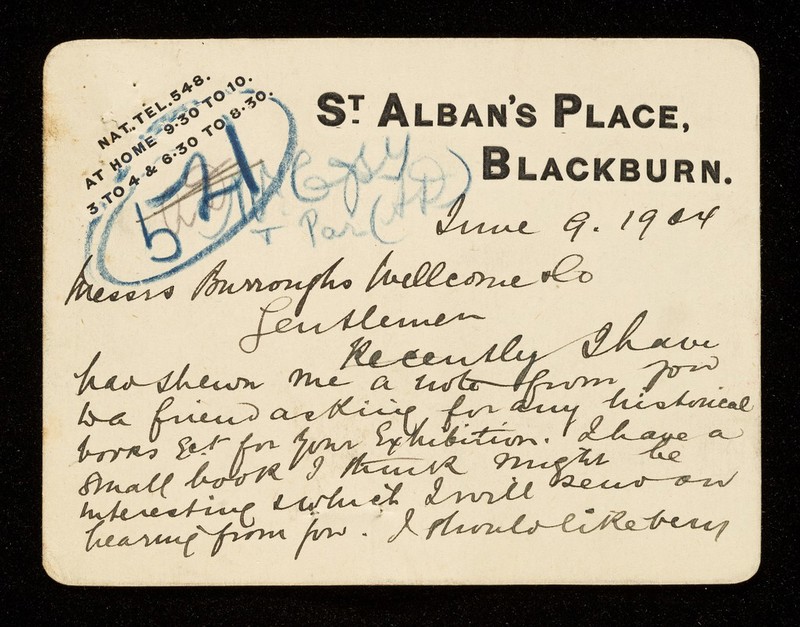 NAT. TEL. 548.
AT HOME 9·30 TO 10.
3 TO 4 & 6·30 TO 8·30.
ST ALBAN'S PLACE,
BLACKBURN.
5-21
+ Par (AD)
June 9. 1904
Messrs Burroughs Wellcome & Co
Gentlemen
Recently I have
had shewn me a note from you
to a friend asking for any historical
books &ct for your Exhibition. I have a
small book I think might be
interesting & which I will send on
hearing from you. I should like very